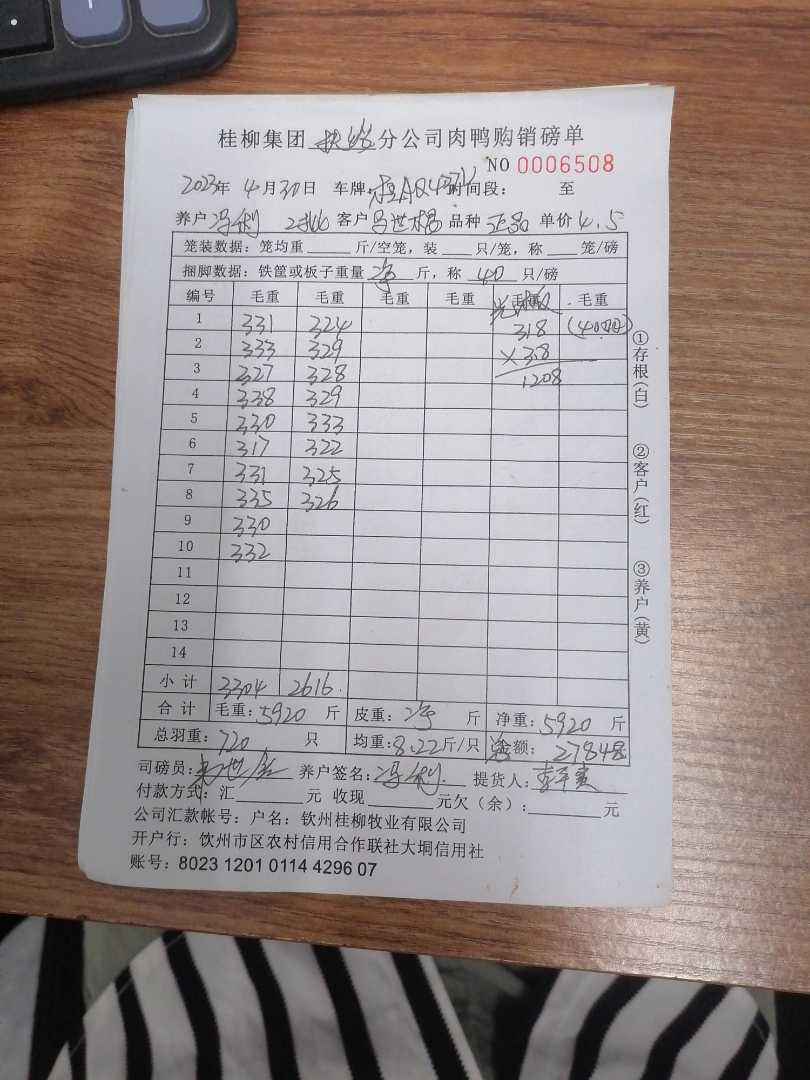 桂柳集团 扶绥 分公司肉鸭购销磅单
NO 0006508
2023年 4月30日 车牌: 时间段: 至
养户 冯利 客户 马世 品种 正品 单价 4.5
笼装数据: 笼均重 斤/空笼, 装 只/笼, 称 笼/磅
捆脚数据: 铁筐或板子重量 斤, 称 40 只/磅
编号 毛重 毛重 毛重 毛重 毛重 毛重
1 331 324 318 (40只)
2 333 329 ×3.8
3 327 328 1208
4 338 329
5 330 333
6 317 322
7 331 325
8 335 326
9 330
10 332
11
12
13
14
小计 3304 2616
合计 毛重: 5920 斤 皮重: 斤 净重: 5920 斤
总羽重: 720 只 均重: 8.22 斤/只 金额: 27848
司磅员: 养户签名: 冯利 提货人:
付款方式: 汇 元 收现 元欠(余): 元
公司汇款帐号: 户名: 钦州桂柳牧业有限公司
开户行: 钦州市区农村信用合作联社大垌信用社
账号: 8023 1201 0114 4296 07
①存根(白)
②客户(红)
③养户(黄)